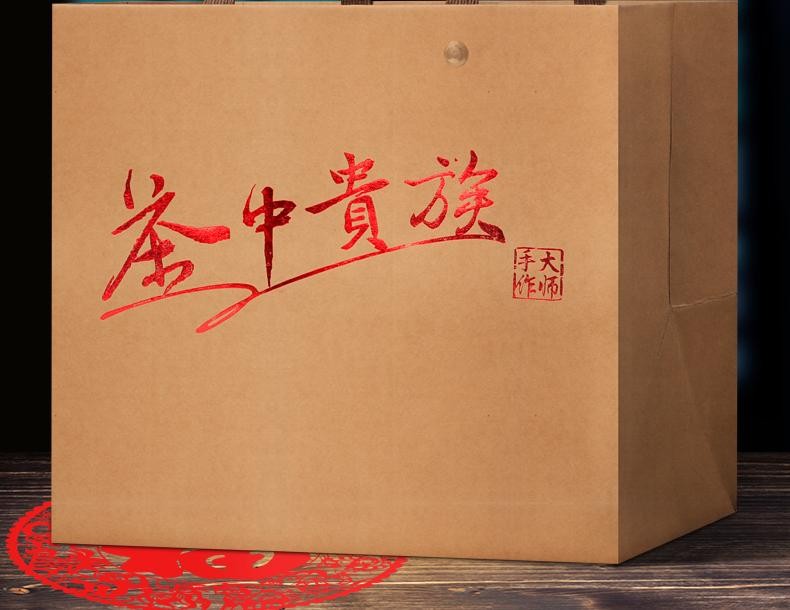 茶中貴族
大师
手作